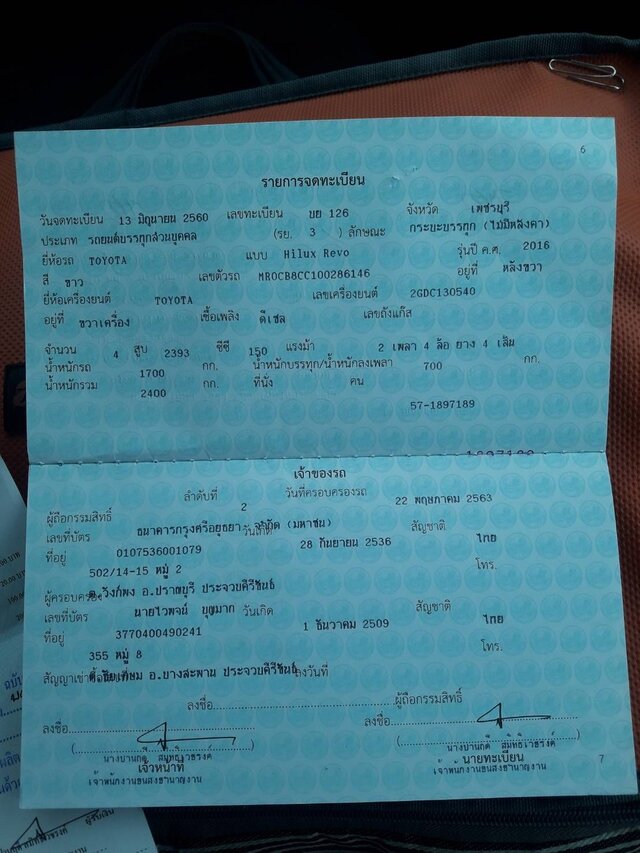 6
รายการจดทะเบียน
วันจดทะเบียน 13 มิถุนายน 2560 เลขทะเบียน บย 126 จังหวัด เพชรบุรี
ประเภท รถยนต์บรรทุกส่วนบุคคล (รย. 3 ) ลักษณะ กระบะบรรทุก (ไม่มีหลังคา)
ยี่ห้อรถ TOYOTA แบบ Hilux Revo รุ่นปี ค.ศ. 2016
สี ขาว เลขตัวรถ MR0CB8CC100286146 อยู่ที่ หลังขวา
ยี่ห้อเครื่องยนต์ TOYOTA เลขเครื่องยนต์ 2GDC130540
อยู่ที่ ขวาเครื่อง เชื้อเพลิง ดีเซล เลขถังแก๊ส
จำนวน 4 สูบ 2393 ซีซี 150 แรงม้า 2 เพลา 4 ล้อ ยาง 4 เส้น
น้ำหนักรถ 1700 กก. น้ำหนักบรรทุก/น้ำหนักลงเพลา 700 กก.
น้ำหนักรวม 2400 กก. ที่นั่ง คน
57-1897189
เจ้าของรถ
ลำดับที่ 2 วันที่ครอบครองรถ 22 พฤษภาคม 2563
ผู้ถือกรรมสิทธิ์ ธนาคารกรุงศรีอยุธยา จำกัด (มหาชน)
เลขที่บัตร 0107536001079 วันเกิด 28 กันยายน 2536 สัญชาติ ไทย
ที่อยู่ 502/14-15 หมู่ 2 โทร.
ต.วังก์พง อ.ปราณบุรี ประจวบคีรีขันธ์
ผู้ครอบครอง นายไวพจน์ บุญมาก
เลขที่บัตร 3770400490241 วันเกิด 1 ธันวาคม 2509 สัญชาติ ไทย
ที่อยู่ 355 หมู่ 8 โทร.
อ.บางสะพาน ประจวบคีรีขันธ์
สัญญาเช่าซื้อ ลงวันที่
ลงชื่อ ผู้ถือกรรมสิทธิ์
ลงชื่อ ลงชื่อ
เจ้าหน้าที่ นายทะเบียน
เจ้าพนักงานขนส่งชำนาญงาน เจ้าพนักงานขนส่งชำนาญงาน
7